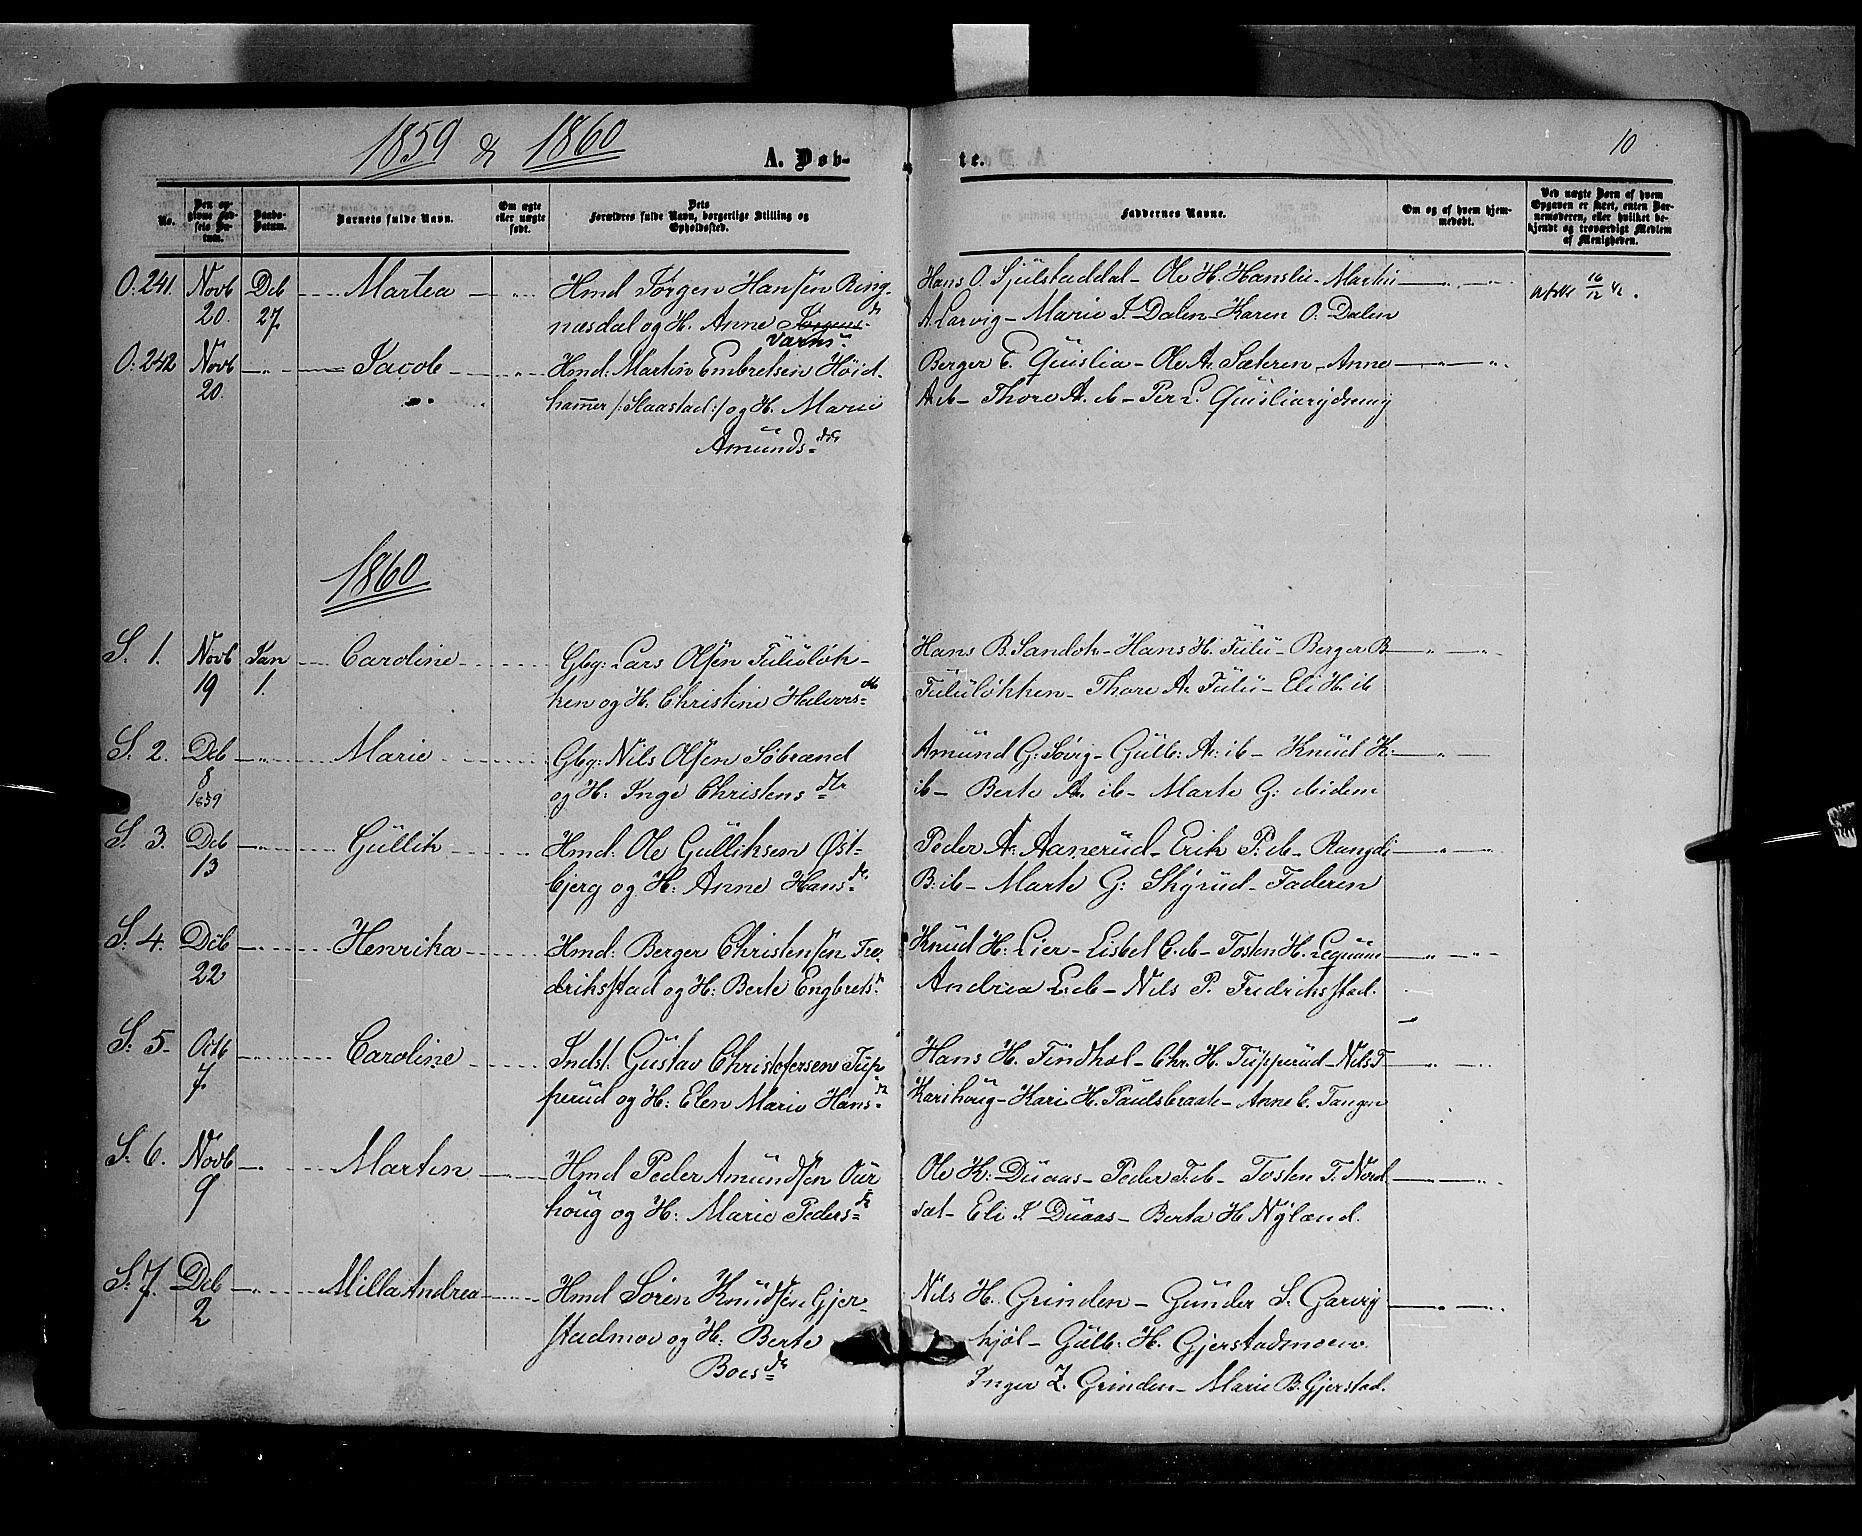 1859 & 1860
A. Døb-
te.
10
No.
Den op-
givne Fød-
sels Da-
tum.
Daabs-
Datum.
Barnets fulde Navn.
Om ægte
eller uægte
født.
Dets
Forældres fulde Navn, borgerlige Stilling og
Opholdssted.
Faddernes Navne.
Om og af hvem hjem-
medøbt.
Ved uægte Børn af hvem
Opgaven er skeet, enten Bar-
nemoderen, eller hvilket be-
kjendt og troværdigt Medlem
af Menigheden.
O. 241. Novb 20. Deb 27 Martea
Hmd Jørgen Hansen Ring-
næsdal og H. Anne Jørgens- dr
Varns-
Hans O. Sjulstaddal - Ole H. Hanslie - Martin
A. Larvig - Marie J. Dalen - Karen O. Dalen
16/12
O. 242 Novb 20. Jacob
Hmd: Martin Embretsen Høid-
hammer /: Staastad :/ og H. Marie
Amunds- dtr
Berger E. Quislia - Ole A. Sæteren - Anne
A. ib - Thore A. ib - Per L. Quisliarydning
1860
S. 1. Novb 19 Jan 1. Caroline
Gbg: Lars Olsen Fululøk-
ken og H. Christine Halvors- dtr
Hans B. Sandok - Hans H. Fulu - Berger B
Fululøkken - Thore A. Fulu - Eli H. ib
S. 2. Deb 8 1859 Marie
Gbg: Nils Olsen Søbrænd
og H: Inge Christens dtr
Amund G. Søvig - Gulb: A: ib - Knud K:
ib - Berte A. ib - Marte G: ibidem
S. 3. Deb 13 Gullik
Hmd: Ole Gulliksen Øst-
bjerg og H: Anne Hans- dr
Peder A. Aanerud - Erik P. ib - Rangdi
B: ib - Marte G: Skyrud - Faderen
S. 4. Deb 22 Henrika
Hmd: Berger Christensen Fre-
driksstad og H: Berte Engbrets- dr
Knud H: Lier - Lisbet C. ib - Tosten H. Lequam
Andrea L. ib - Nils P. Fredriksstad.
S. 5. Octb 7. Caroline
Indst. Gustav Christofersen Tup-
perud og H: Elen Marie Hans- dr
Hans H. Tindhol - Chr. H. Tupperud - Nils T
Karihoug - Kari H. Paulsbraate - Anne C. Tangen
S. 6. Novb 9 Martin
Hmd Peder Amundsen Our
houg og H: Marie Peders- dr
Ole K: Duaas - Peder T. ib - Tosten T. Nord
sæt - Eli J. Duaas - Berta H Nyland.
S. 7. Deb 2 Milla Andrea
Hmd Søren Knudsen Gjer-
stadmoe og H. Berte
Boes- dr
Nils H. Grinden - Gunder S. Garvig
kjøl - Gulb: H. Gjerstadmoen
Inger Z. Grinden - Marie B. Gjerstad.